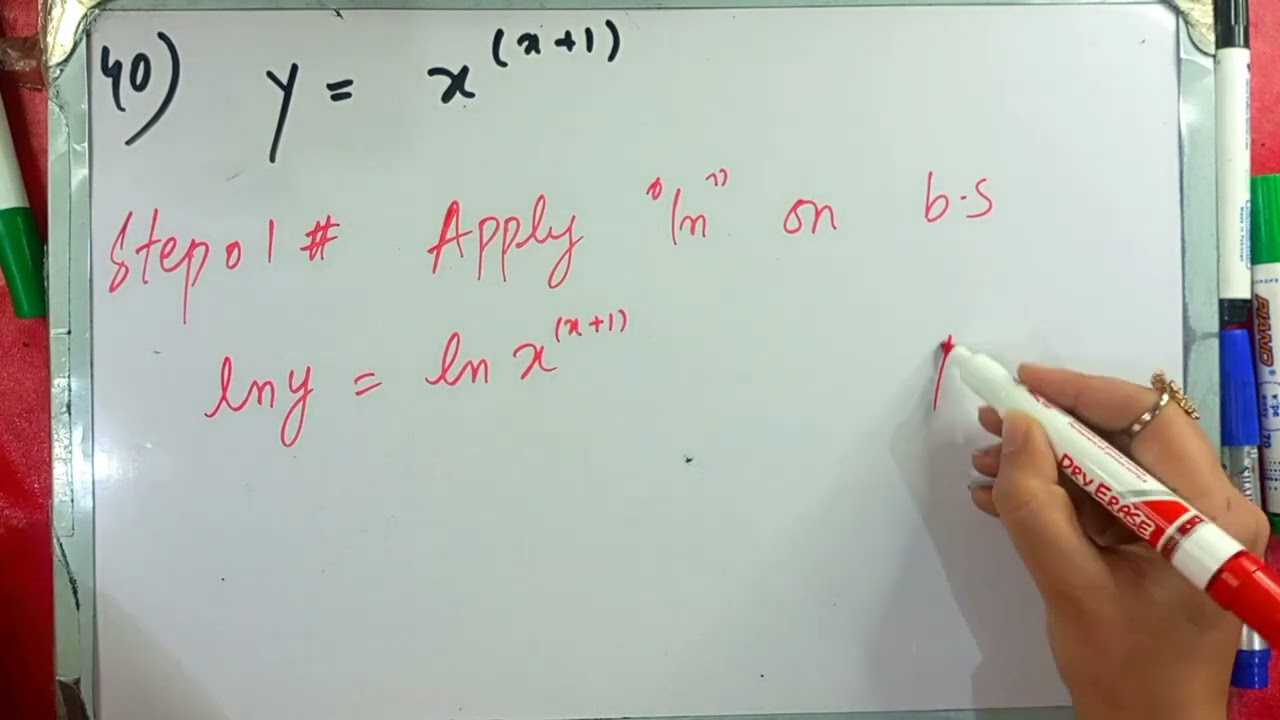 40) y = x^(x+1)
Step 01 # Apply "ln" on b.s
ln y = ln x^(x+1)
DRY ERASE
PIANO